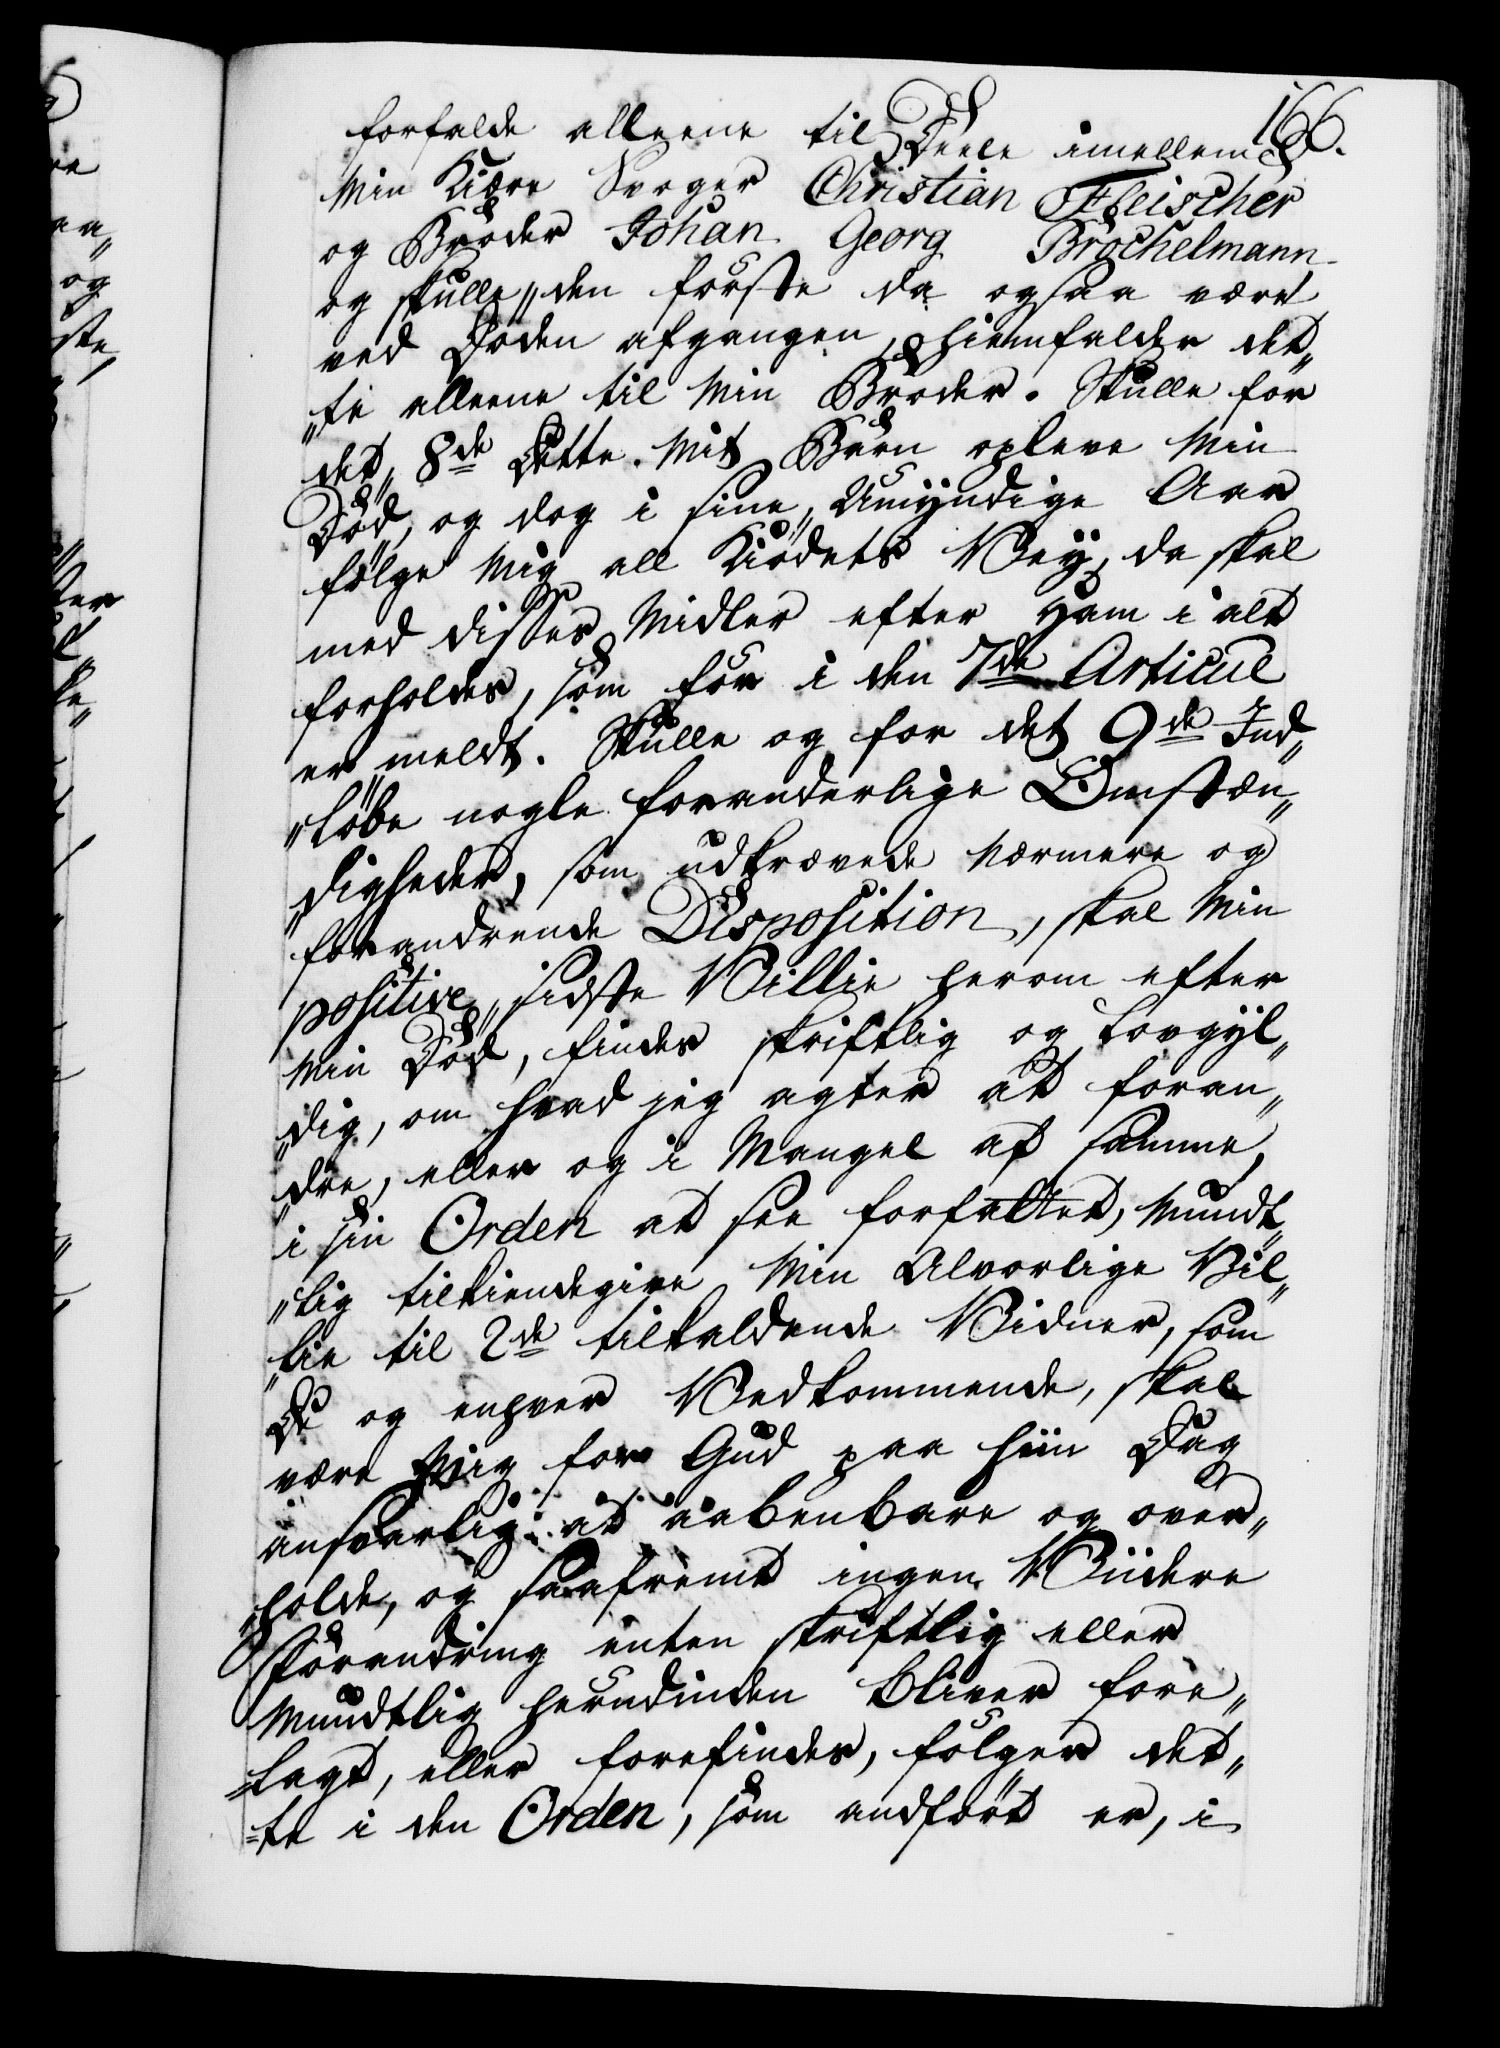 166.
forfalde alleene til Deele imellem
min Kiære Svoger Christian Fleischer
og Broder Johan Georg Brøchelmann
og skulle den første da ogsaa være
ved Døden afgangen, hiemfalder det„
„te alleene til min Broder. Skulle for
det 8de Dette mit Barn opleve min
Død, og dog i sine Umyndige Aar
følge mig all Kiødets Vey, da skal
med disses Midler efter ham i alt
forholdes, som før i den 7de Articul
er meldt. Skulle og for det 9de Ind„
„løbe nogle foranderlige Omstæn„
„digheder, som udkrævede nærmere og
forandrende Disposition, skal min
positive sidste Villie herom efter
min Død, findes skriftlig og lovgyl„
„dig, om hvad jeg agter at foran„
„dre, eller og i Mangel af samme
i sin Orden at see forfattet, mundt„
„lig tilkiendegive min Alvorlige Vil„
„lie til 2de tilkaldende Vidner, som
De og enhver Vedkommende, skal
være mig for Gud paa hiin Dag
ansvarlig at aabenbare og over„
„holde, og saafremt ingen Viidere
Forandring enten skriftlig eller
mundtlig herudinden bliver fore„
„lagt, eller forefindes, følger det„
„te i den Orden, som andført er, i